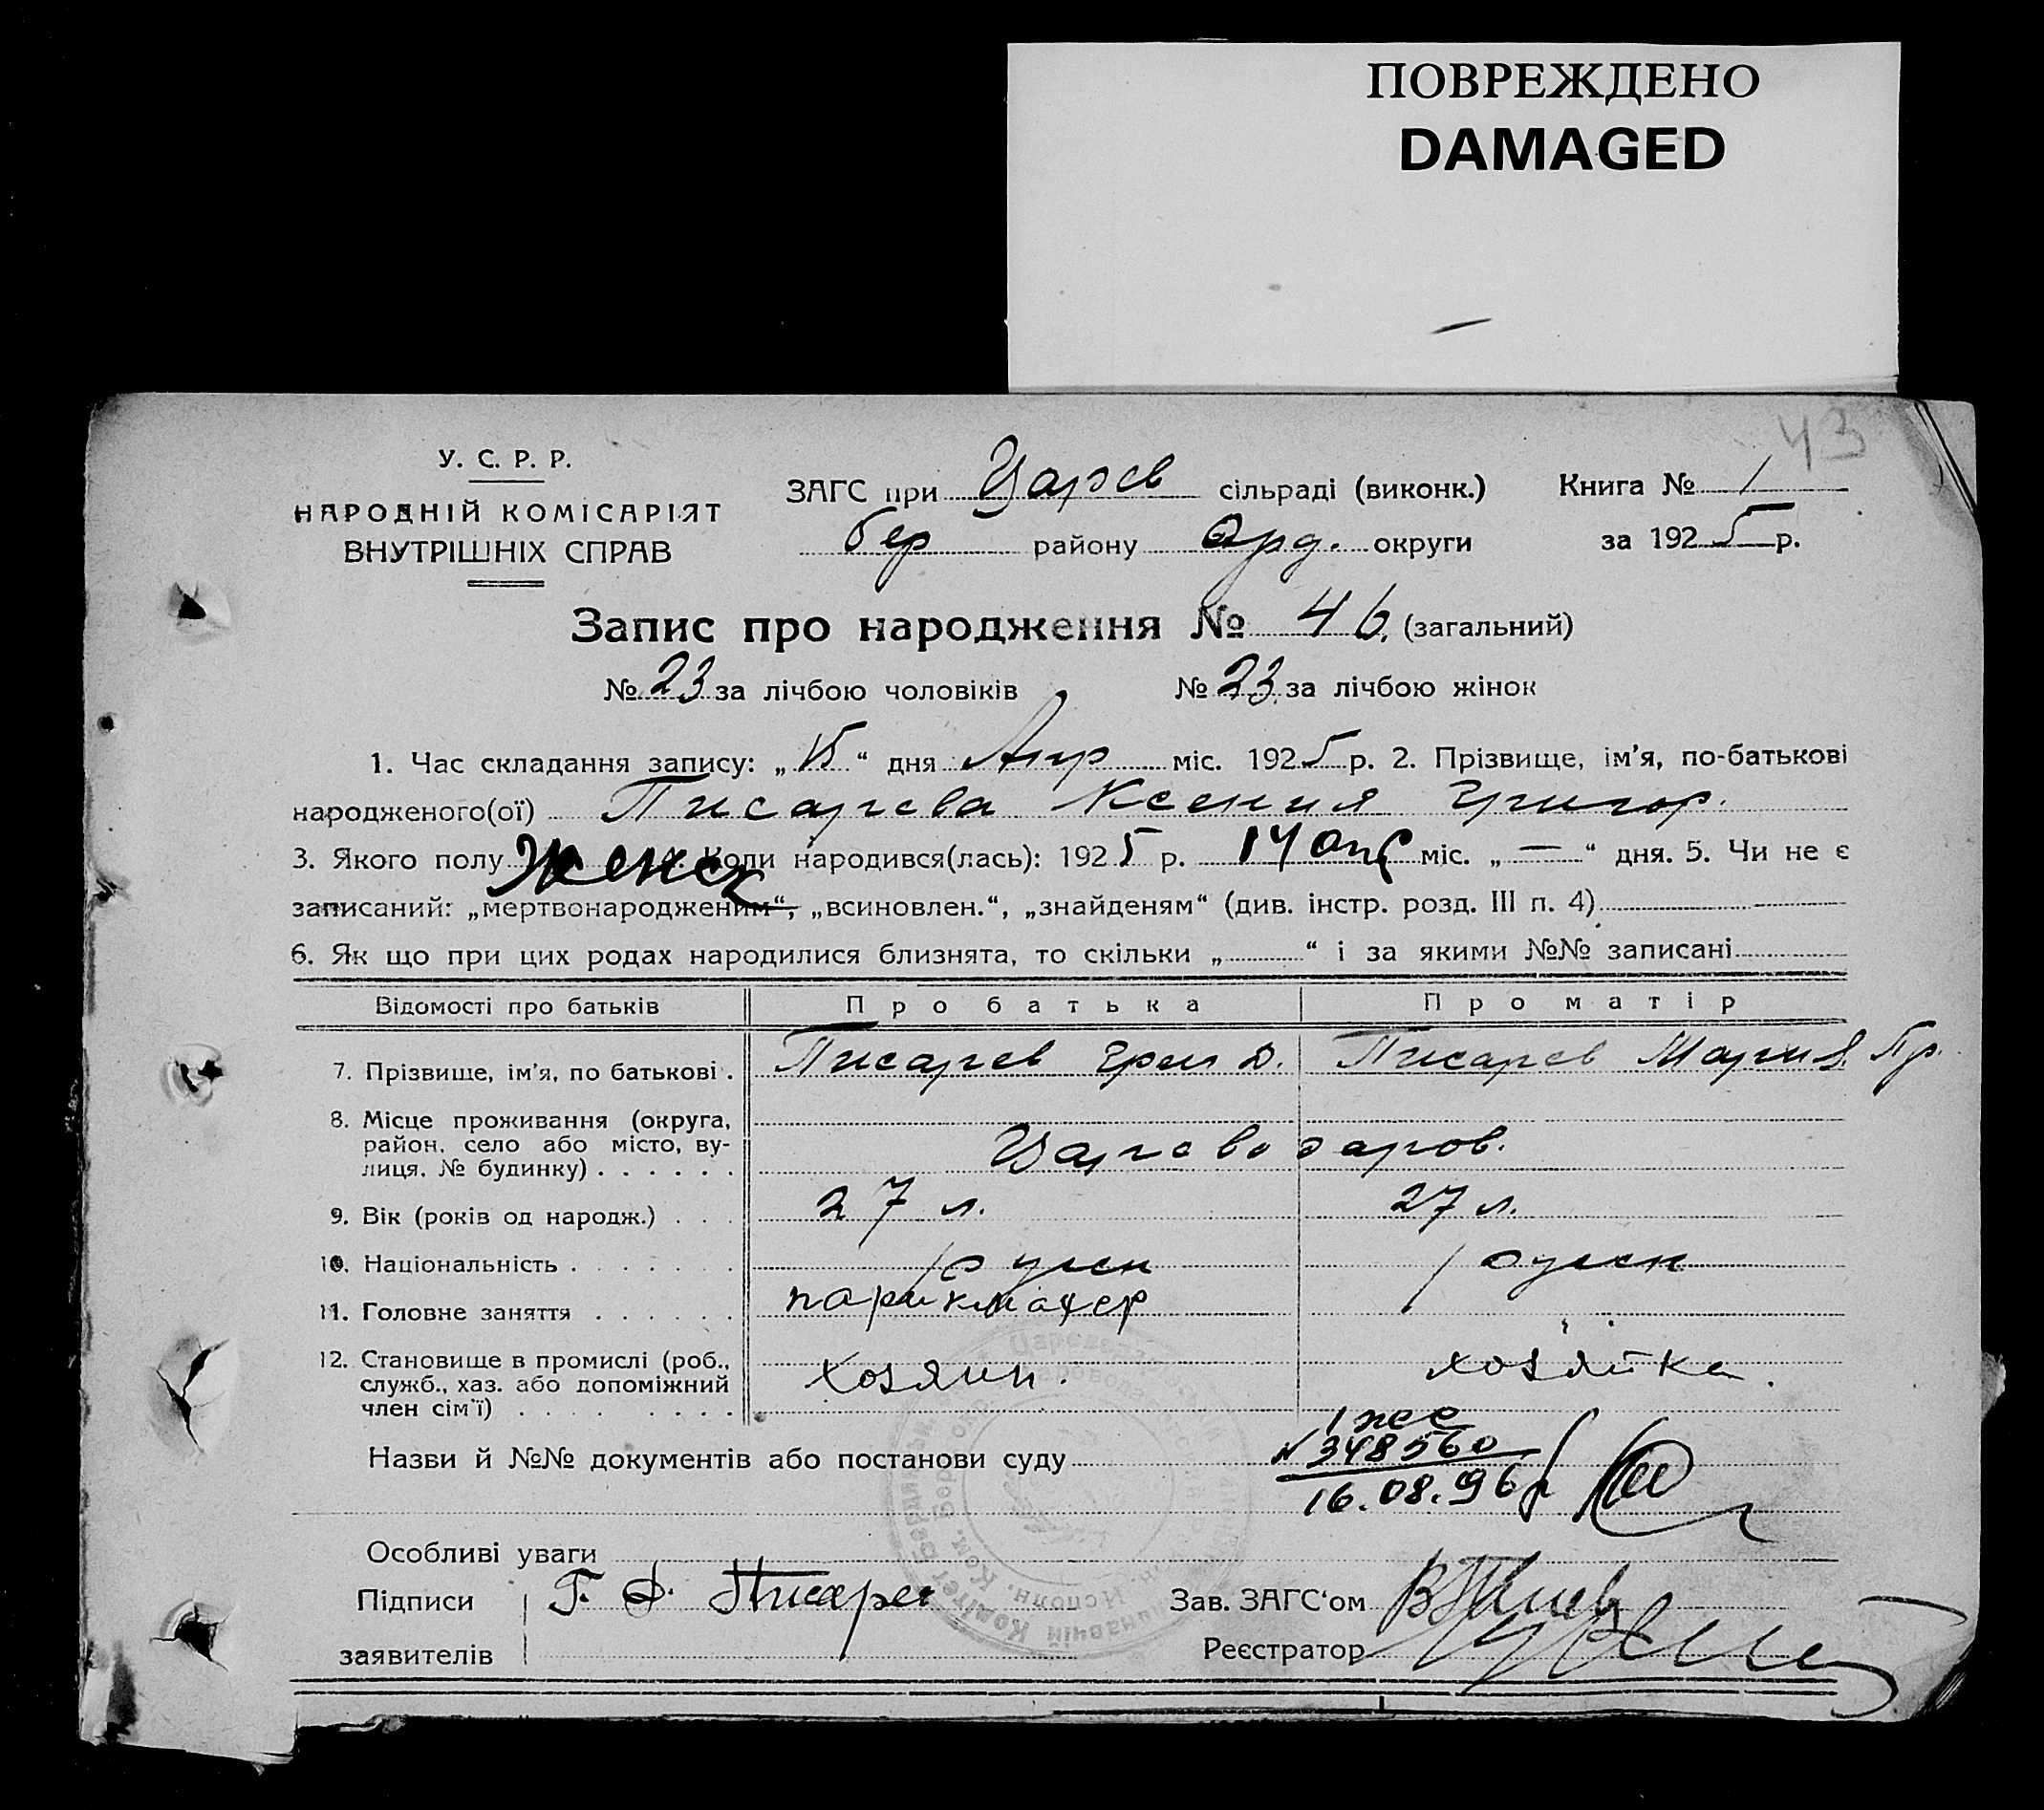 ПОВРЕЖДЕНО
DAMAGED
43
У. С. Р. Р.
НАРОДНІЙ КОМІСАРІЯТ
ВНУТРІШНІХ СПРАВ
ЗАГС при Царев сільраді (виконк.) Книга № 1
бер району округи за 1925 р.
Запис про народження № 46. (загальний)
№ 23 за лічбою чоловіків № 23. за лічбою жінок
1. Час складання запису: „15“ дня Апр міс. 1925 р. 2. Прізвище, ім'я, по-батькові
народженого(ої) Писарева Ксения Григор.
3. Якого полу женск Коли народився(лась): 1925 р. 14 апр міс. „—“ дня. 5. Чи не є
записаний: „мертвонародженим“, „всиновлен.“, „знайденям“ (див. інстр. розд. III п. 4)
6. Як що при цих родах народилися близнята, то скільки „ “ і за якими №№ записані
Відомості про батьків Про батька Про матір
7. Прізвище, ім'я, по батькові . Писарев Григ Д. Писарев Мария Гр.
8. Місце проживання (округа,
район, село або місто, ву-
лиця, № будинку) . . . . . . Цареводаров.
9. Вік (років од народж.) . . . 27 л. 27 л.
10. Національність . . . . . . . русск русск
11. Головне заняття . . . . . . парикмахер
12. Становище в промислі (роб.,
служб., хаз. або допоміжний
член сім'ї) . . . . . . . . хозяин. хозяйка.
Назви й №№ документів або постанови суду
№ 348560
16.08.96
Особливі уваги
Підписи Г. Д. Писарев Зав. ЗАГС'ом
заявителів Реєстратор